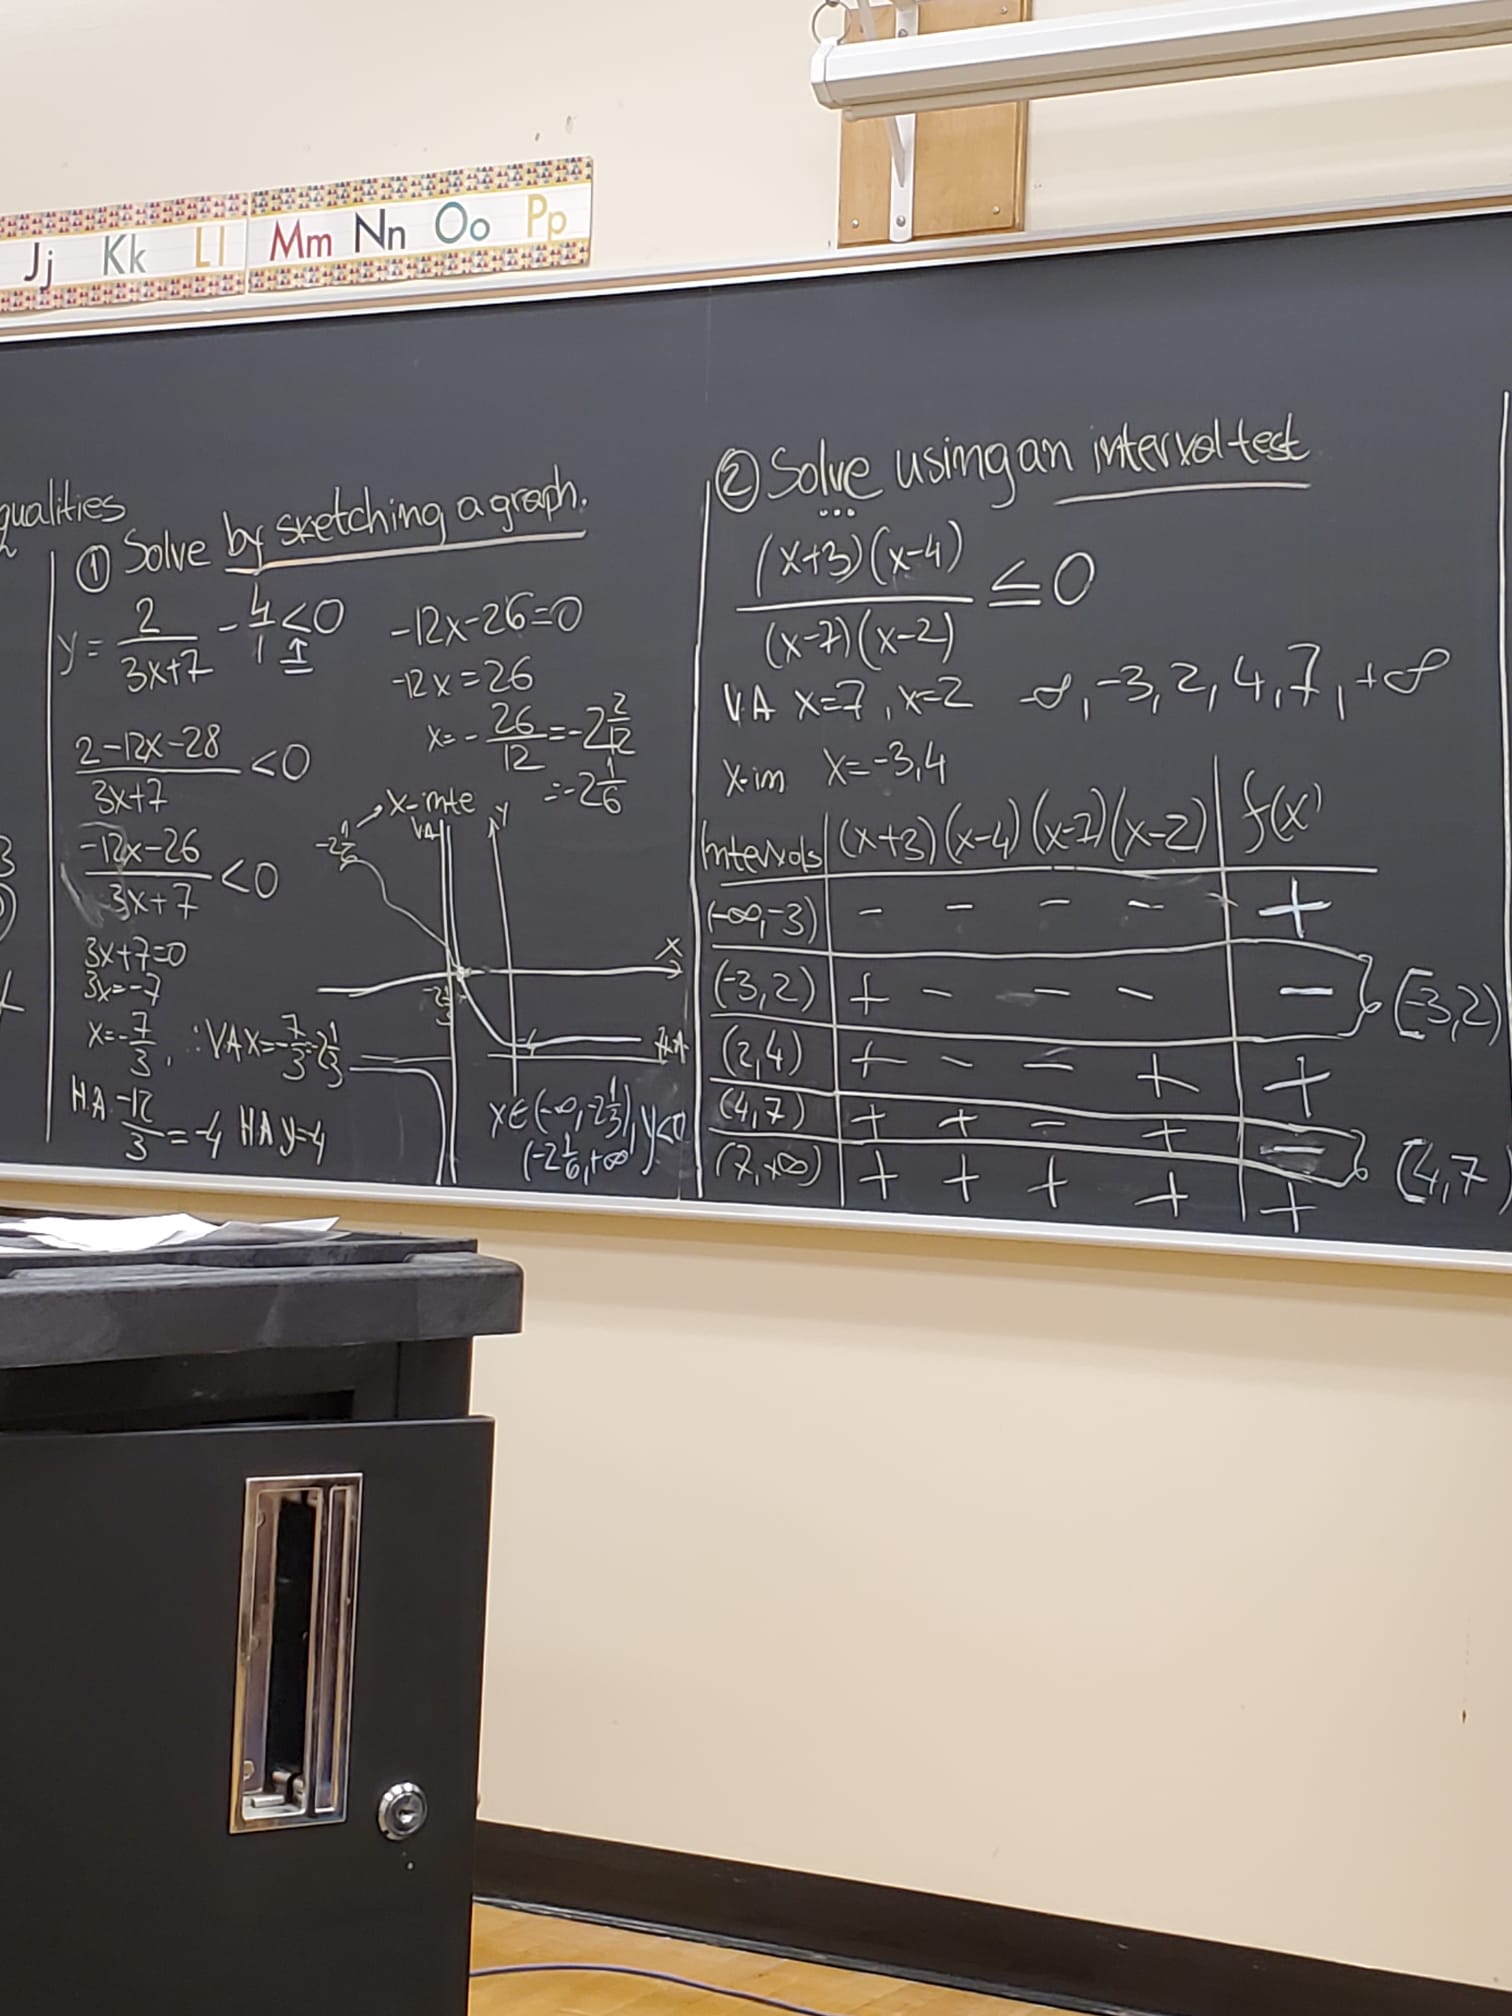 Jj Kk Ll Mm Nn Oo Pp
qualities
① Solve by sketching a graph.
y = 2/(3x+7) - 4/1 < 0
(2-12x-28)/(3x+7) < 0
(-12x-26)/(3x+7) < 0
3x+7=0
3x=-7
x=-7/3, ∴VA x=-7/3=-2 1/3
H.A. -12/3 = -4 HA y=-4
-12x-26=0
-12x=26
x=-26/12=-2 2/12
=-2 1/6
-2 1/6 x-inte
VA y
x
-2 1/3
H.A.
x∈(-∞,-2 1/3), y<0
(-2 1/6,+∞)
② Solve using an interval test
((x+3)(x-4))/((x-7)(x-2)) ≤ 0
V.A x=7, x=2 -∞, -3, 2, 4, 7, +∞
x-in x=-3,4
Intervals (x+3) (x-4) (x-7) (x-2) f(x)
(-∞,-3) - - - - +
(-3,2) + - - - - [-3,2)
(2,4) + - - + +
(4,7) + + - + - [4,7)
(7,+∞) + + + + +